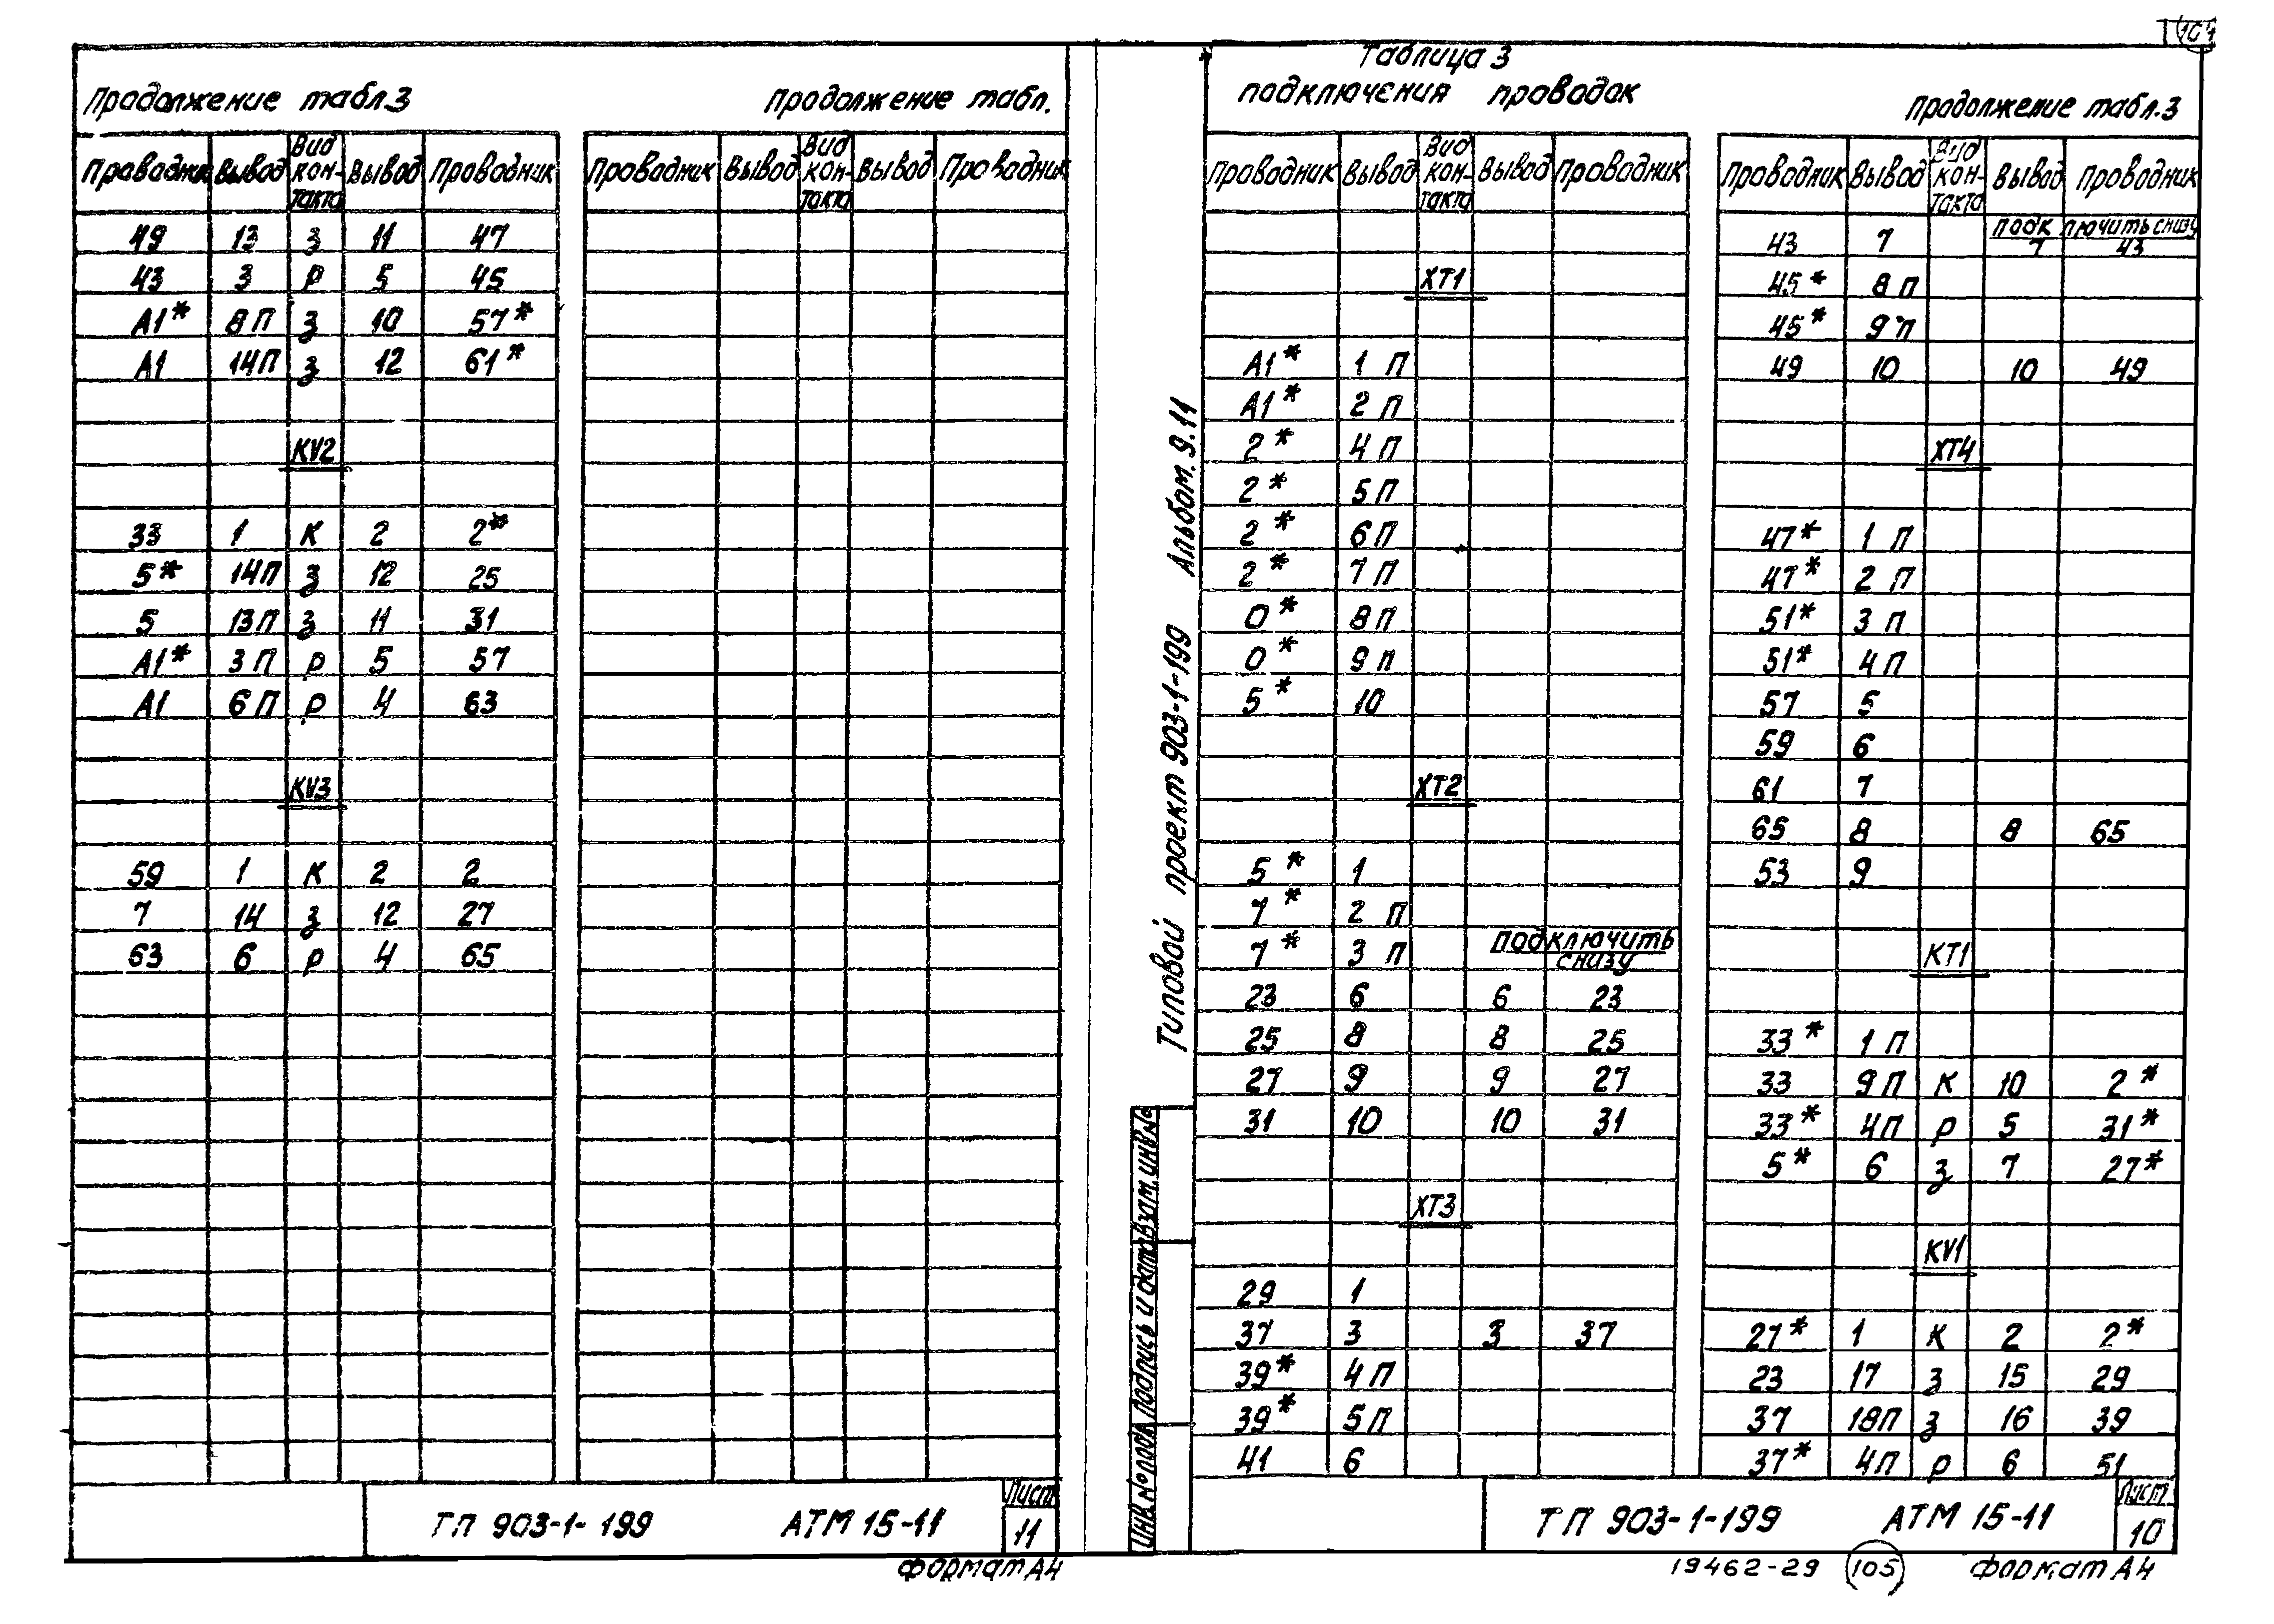 104
Продолжение табл.3
Проводник Вывод Вид контакта Вывод Проводник
49 13 з 11 47
43 3 р 5 45
А1* 8П з 10 57*
А1 14П з 12 61*
KV2
33 1 К 2 2*
5* 14П з 12 25
5 13П з 11 31
А1* 3П р 5 57
А1 6П р 4 63
KV3
59 1 К 2 2
7 14 з 12 27
63 6 р 4 65
Продолжение табл.
Проводник Вывод Вид контакта Вывод Проводник
ТП 903-1-199 АТМ 15-11
Лист
11
Формат А4
Типовой проект 903-1-199 Альбом. 9.11
Инв.№подл. Подпись и дата Взам.инв.№
Таблица 3
подключения проводок
Проводник Вывод Вид контакта Вывод Проводник
XT1
А1* 1 П
А1* 2 П
2* 4 П
2* 5 П
2* 6 П
2* 7 П
0* 8 П
0* 9 П
5* 10
XT2
5* 1
7* 2 П
7* 3 П Подключить снизу
23 6 6 23
25 8 8 25
27 9 9 27
31 10 10 31
XT3
29 1
37 3 3 37
39* 4 П
39* 5 П
41 6
Продолжение табл.3
Проводник Вывод Вид контакта Вывод Проводник
подключить снизу
43 7 7 43
45* 8 П
45* 9 П
49 10 10 49
XT4
47* 1 П
47* 2 П
51* 3 П
51* 4 П
57 5
59 6
61 7
65 8 8 65
53 9
КТ1
33* 1 П
33 9 П К 10 2*
33* 4П р 5 31*
5* 6 з 7 27*
KV1
27* 1 К 2 2*
23 17 з 15 29
37 18П з 16 39
37* 4П р 6 51
ТП 903-1-199 АТМ 15-11
Лист
10
19462-29 105 Формат А4